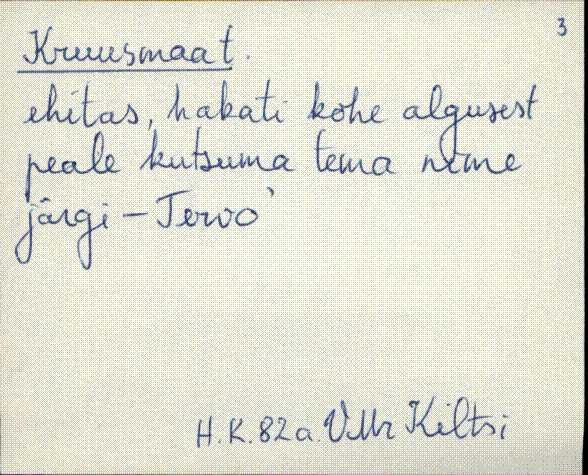 3
Kruusmaat.
ehitas, hakati kohe algusest
peale kutsuma tema nime
järgi – Tervo'
H.K. 82a. VMr Kiltsi